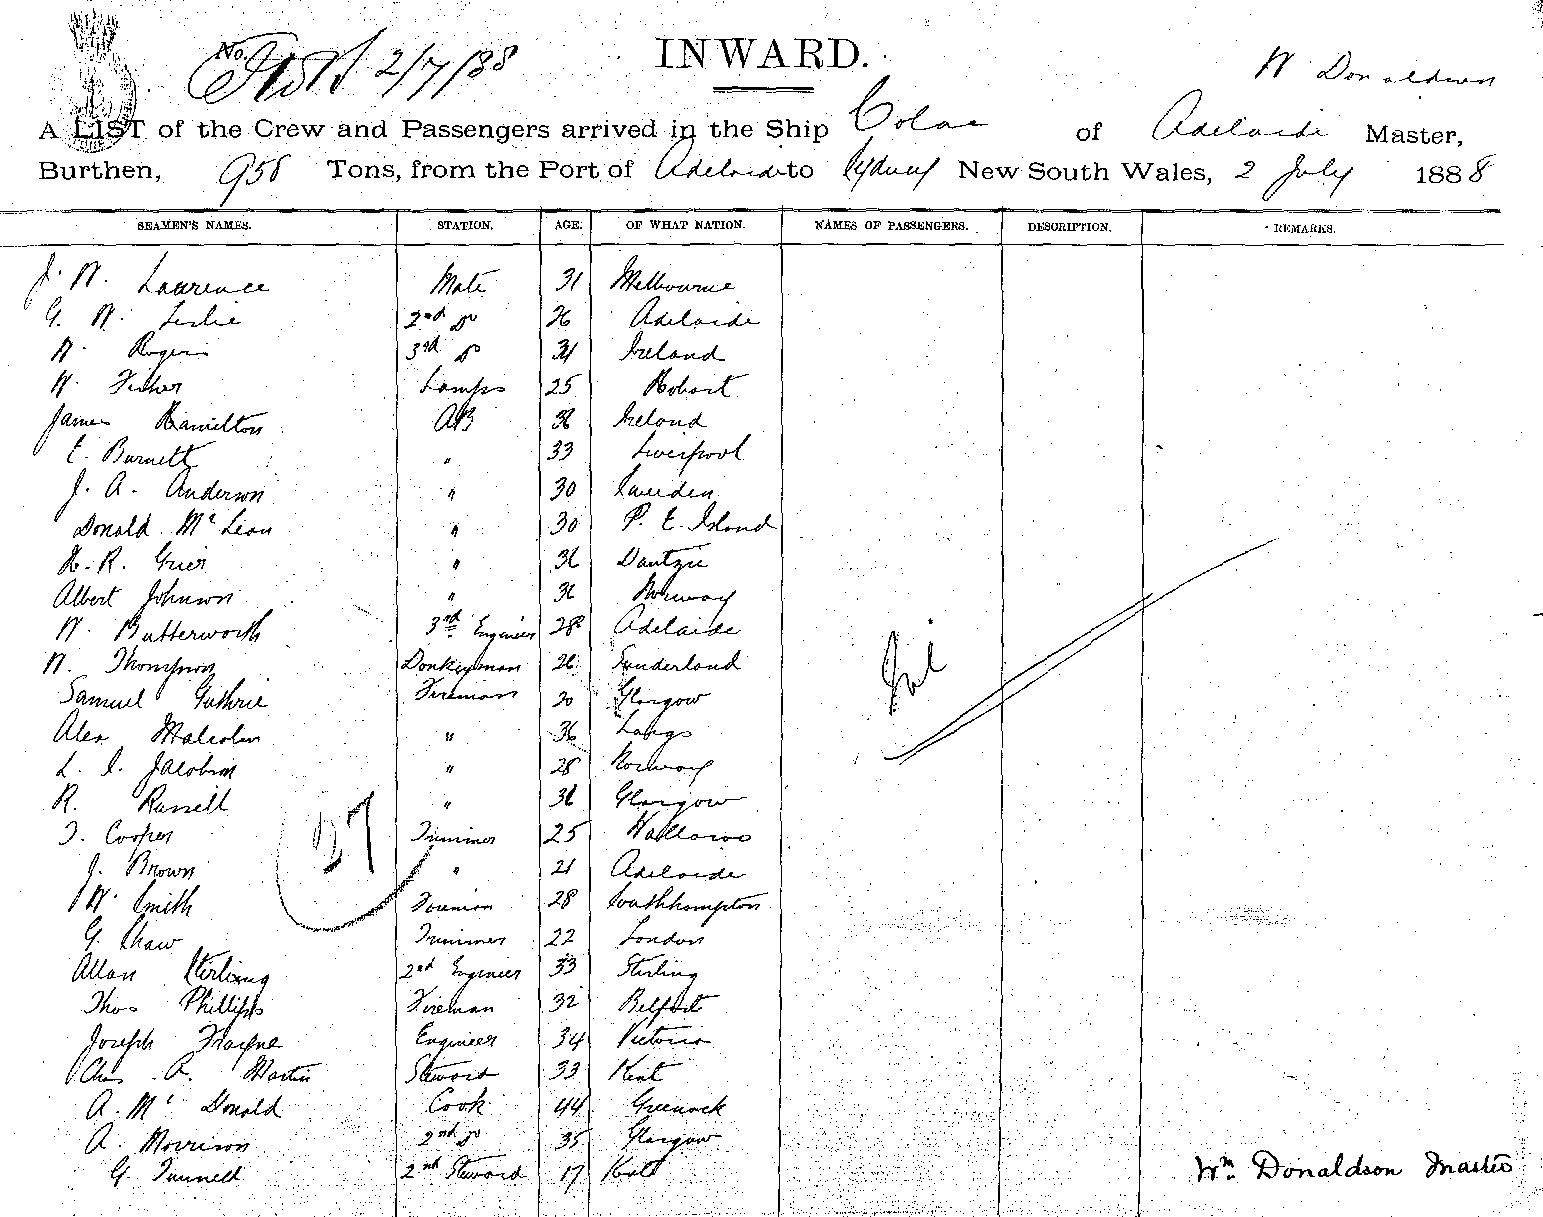 No. 2/7/88
INWARD.
W Donaldson
A LIST of the Crew and Passengers arrived in the Ship Colac of Adelaide Master,
Burthen, 958 Tons, from the Port of Adelaide to Sydney New South Wales, 2 July 1888
SEAMEN'S NAMES. STATION. AGE. OF WHAT NATION. NAMES OF PASSENGERS. DESCRIPTION. REMARKS.
J. W. Lawrence Mate 31 Melbourne
G. W. Leslie 2nd Do 26 Adelaide
W. Rogers 3rd Do Ireland
W. Fisher Lamps 25 Hobart
James Hamilton AB 36 Ireland
E. Burnett " 33 Liverpool
J. A. Anderson " 30 Sweden
Donald McLean " 30 P. E. Island
H. R. Grier " 36 Dantzic
Albert Johnson " 36 Norway
W. Butterworth 3rd Engineer 28 Adelaide
W. Thompson Donkeyman 26 Sunderland
Samuel Guthrie Fireman 30 Glasgow
Alex Malcolm " 36 Largs
L. I. Jacobson " 28 Norway
R. Russell " 36 Glasgow
T. Cooper Trimmer 25 Wallaroo
J. Brown " 21 Adelaide
W. Smith Fireman 28 Southhampton
G. Shaw Trimmer 22 London
Allan Stirling 2nd Engineer 33 Stirling
Thos Phillips Fireman 32 Belfast
Joseph Frayne Engineer 34 Victoria
Chas A. Martin Steward 33 Kent
A. Mc Donald Cook 44 Greenock
A. Morrison 2nd Do 35 Glasgow
G. Tunnell 2nd Steward 17 Kent
Nil
27
Wm Donaldson Master